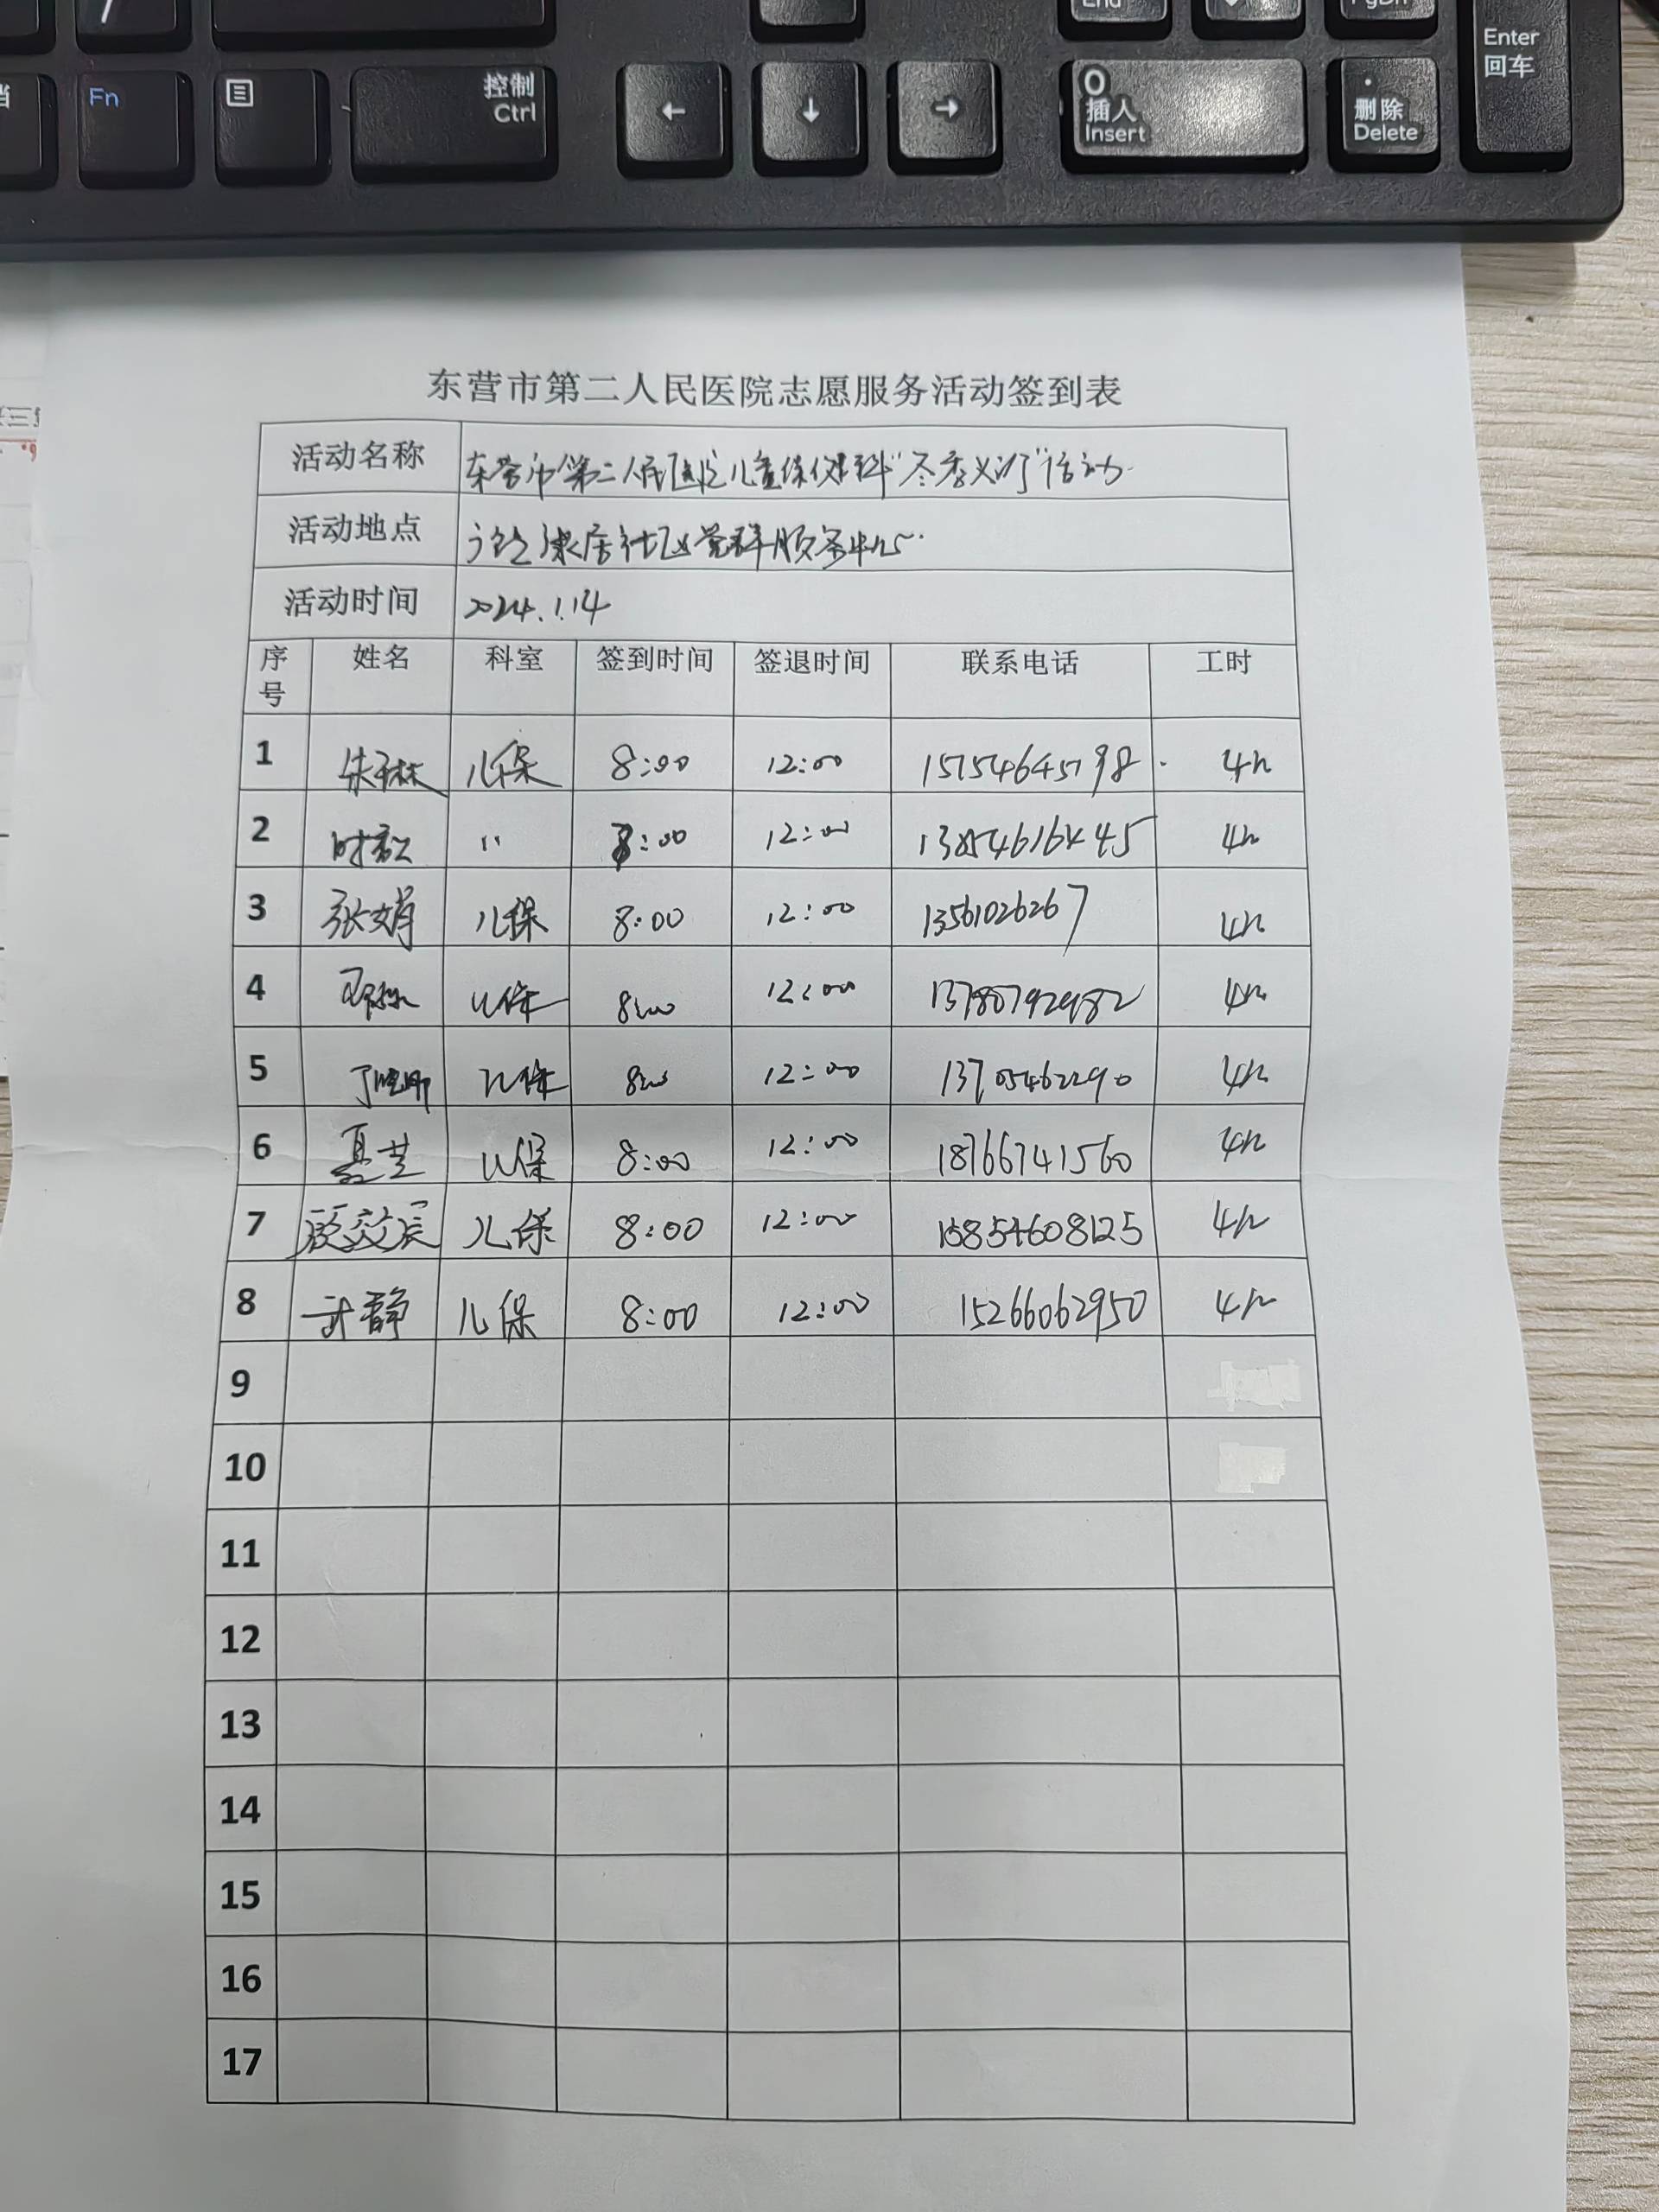 Fn
控制
Ctrl
End
PgDn
Enter
回车
0
插入
Insert
删除
Delete
东营市第二人民医院志愿服务活动签到表
活动名称 东营市第二人民医院儿童保健科"冬季义诊"活动
活动地点 康居社区党群服务中心
活动时间 2024.1.14
序号 姓名 科室 签到时间 签退时间 联系电话 工时
1 朱琳琳 儿保 8:00 12:00 15754645798 4h
2 8:00 12:00 13854616445 4h
3 张娟 儿保 8:00 12:00 13561026267 4h
4 儿保 8:00 12:00 13780792982 4h
5 儿保 8:00 12:00 13705462290 4h
6 儿保 8:00 12:00 18766741560 4h
7 儿保 8:00 12:00 15854608125 4h
8 武静 儿保 8:00 12:00 15266062950 4h
9
10
11
12
13
14
15
16
17